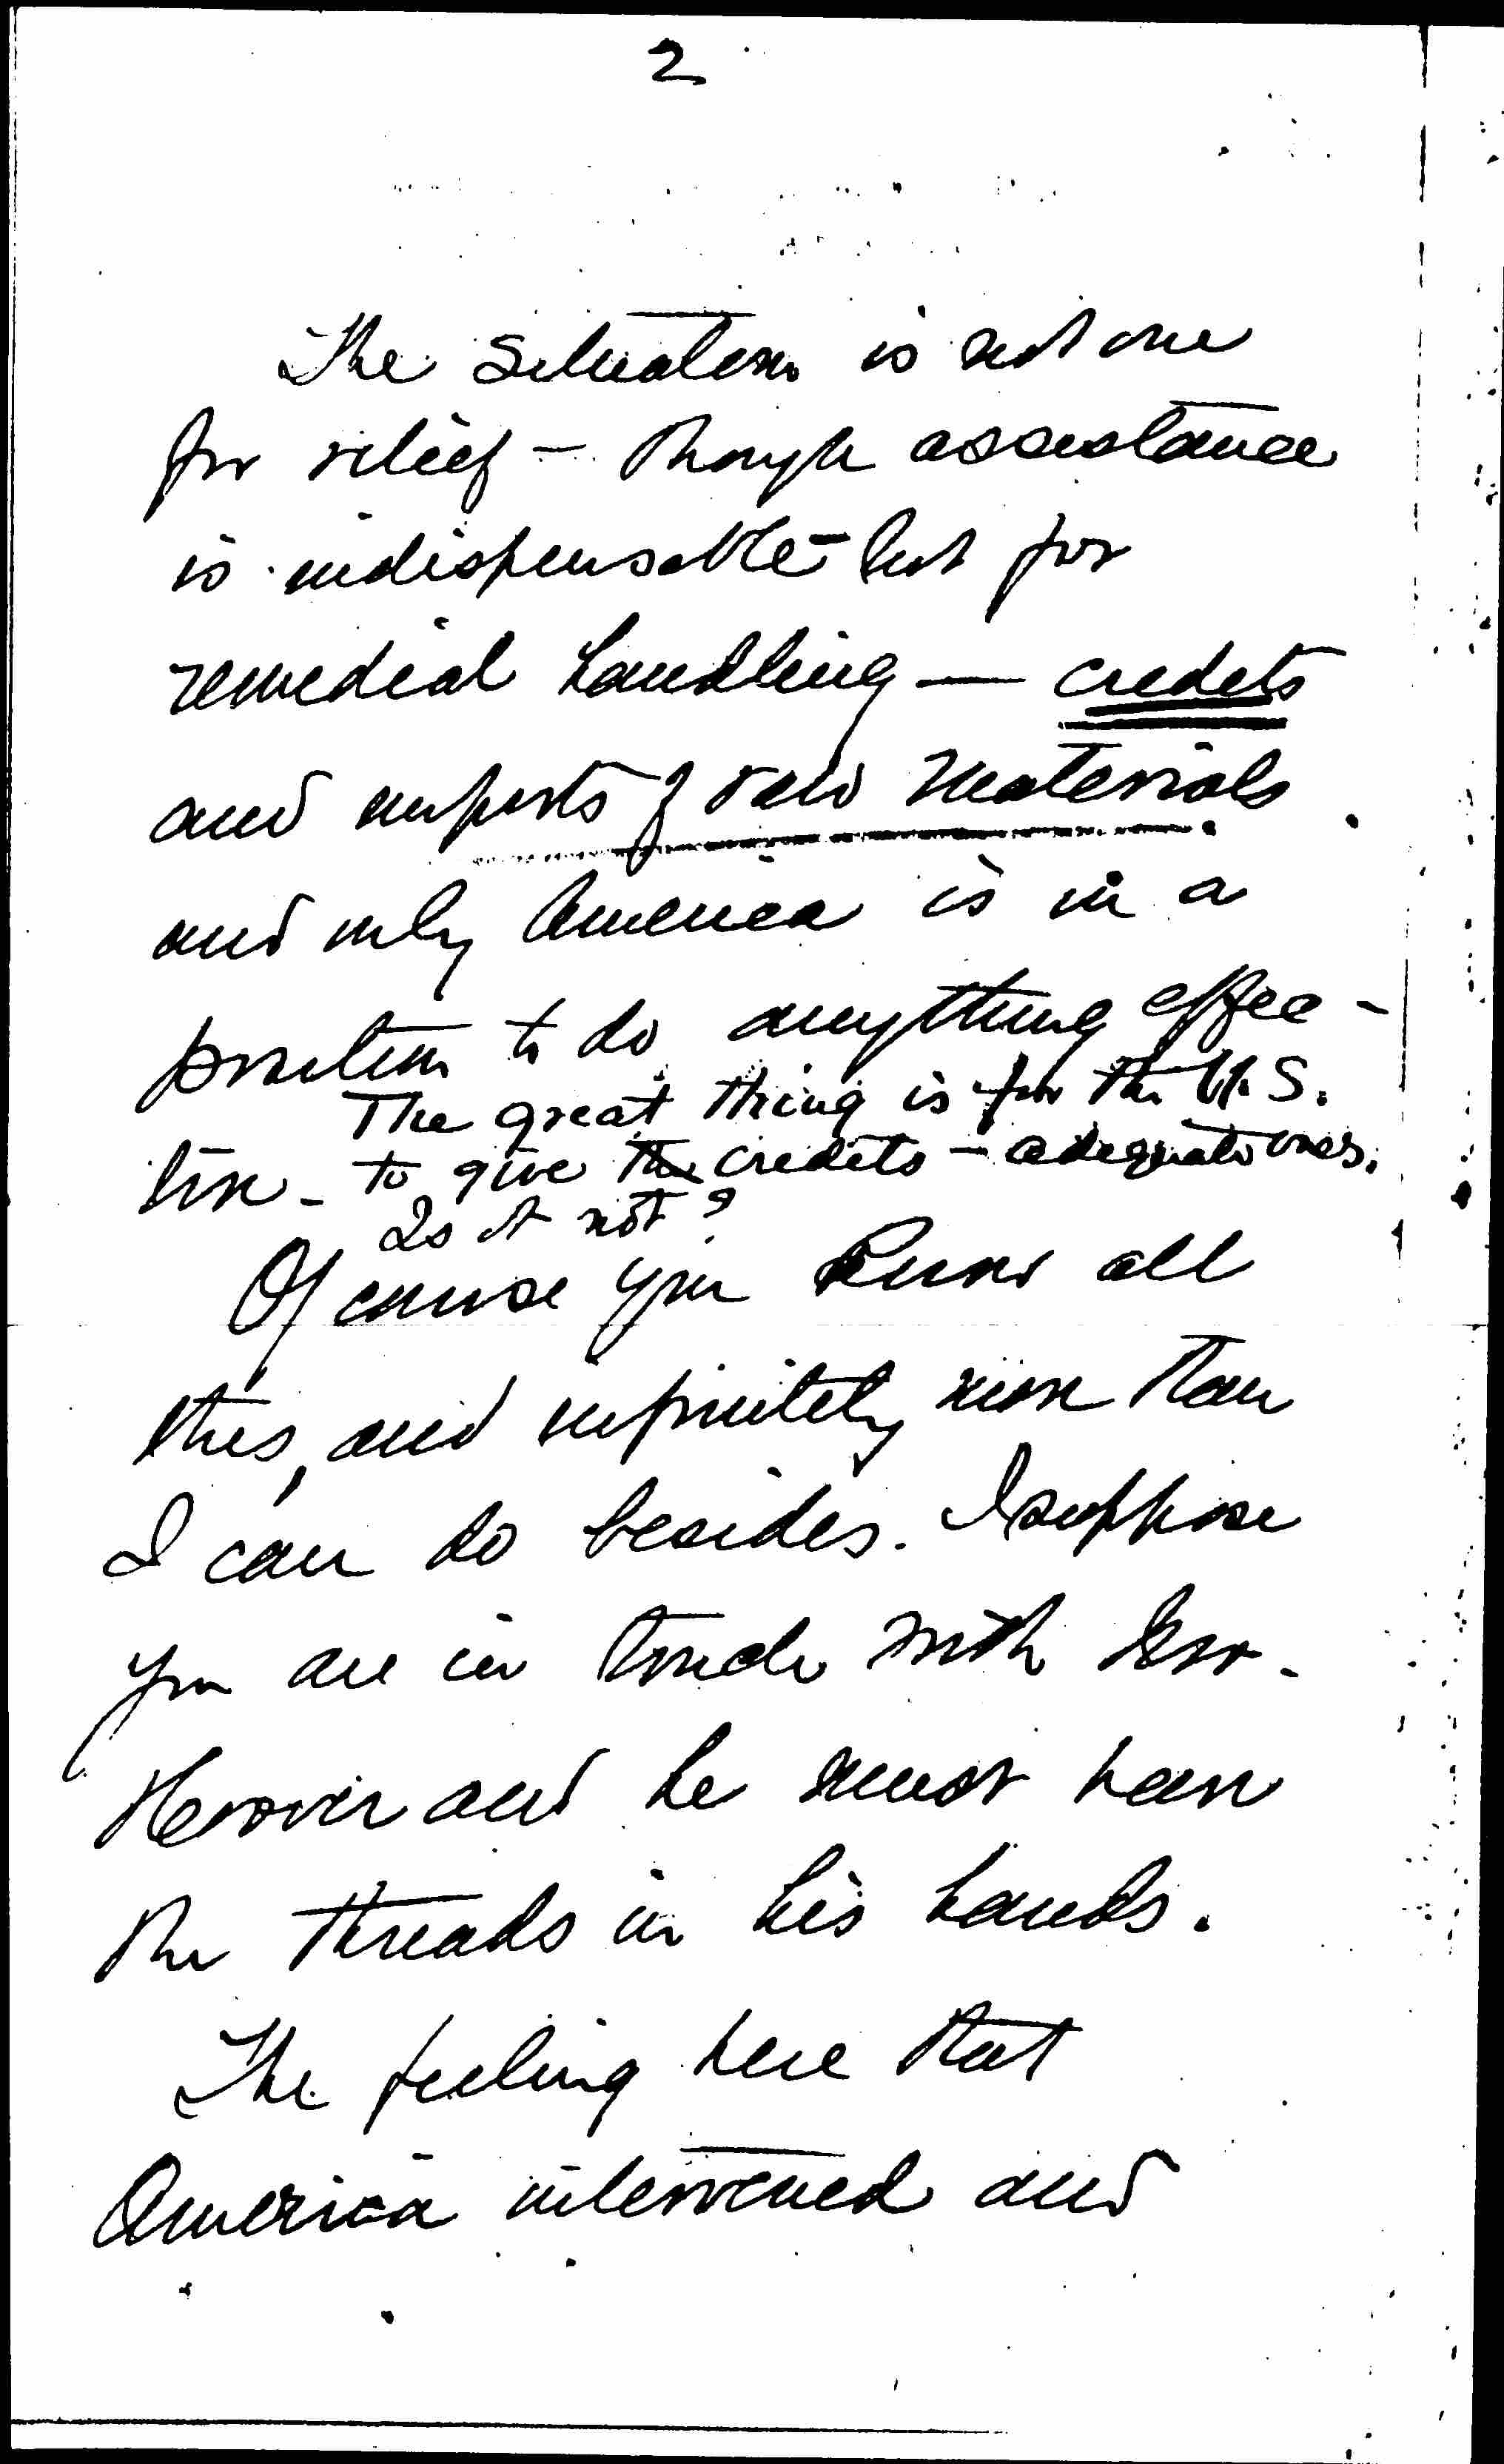 2
The Situation is not one
for relief - though assistance
is indispensable - but for
remedial handling — credits
and imports of raw materials.
and only America is in a
position to do anything effec-
The great thing is for the U.S.
tive - to give the credits - adequate ones.
Is it not?
Of course you know all
this, and infinitely more than
I can do besides. I suppose
you are in touch with Gov.
Hoover and he must have
the threads in his hands.
The feeling here that
America intervened and